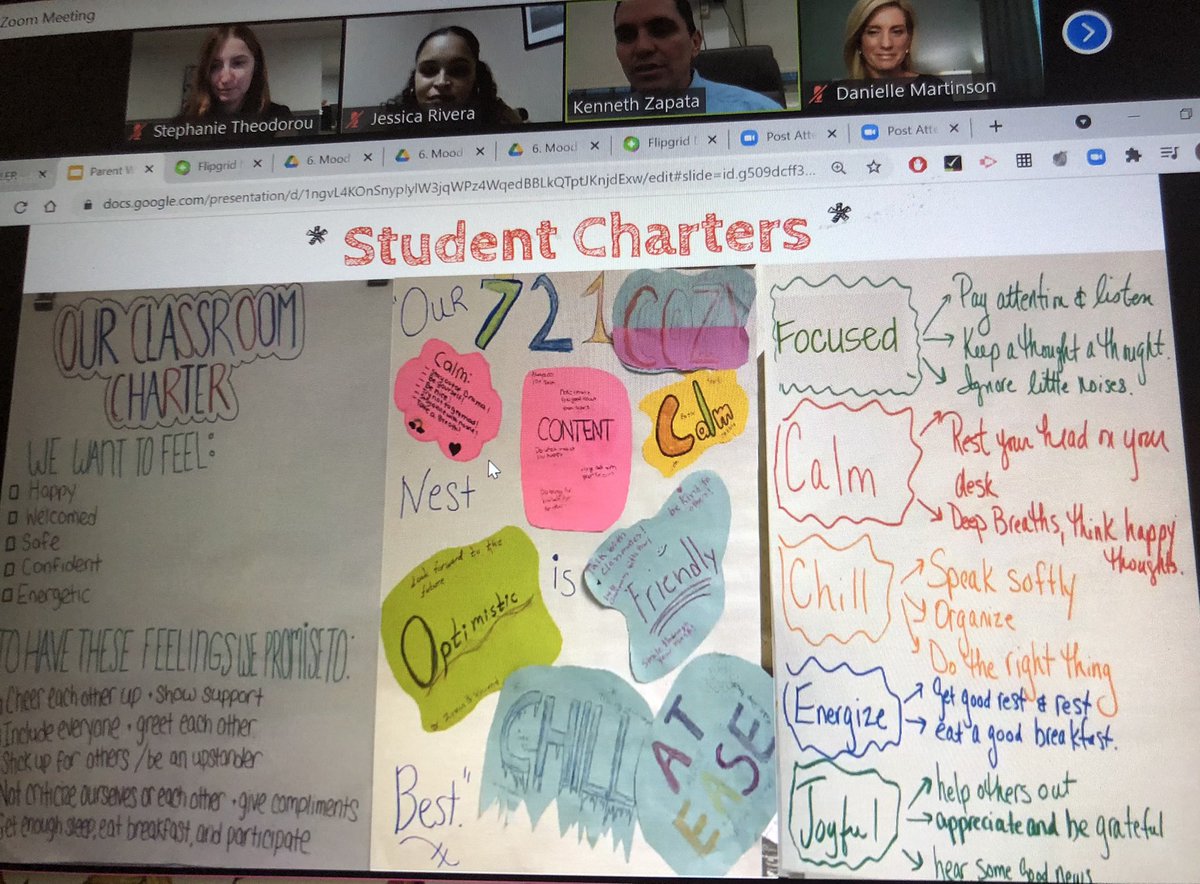 Zoom Meeting
Stephanie Theodorou
Jessica Rivera
Kenneth Zapata
Danielle Martinson
Parent
Flipgrid
6. Mood
6. Mood
6. Mood
Flipgrid
Post Atte
Post Atte
docs.google.com/presentation/d/1ngvL4KOnSnypIyIW3jqWPz4WqedBBLkQTptJKnjdExw/edit#slide=id.g509dcff3...
* Student Charters *
OUR CLASSROOM
CHARTER
WE WANT TO FEEL:
Happy
Welcomed
Safe
Confident
Energetic
TO HAVE THESE FEELINGS WE PROMISE TO:
Cheer each other up • Show support
Include everyone • greet each other
Stick up for others / be an upstander
Not criticize ourselves or each other • give compliments
Get enough sleep, eat breakfast, and participate
"Our 721 COZY
Calm:
CONTENT
Calm
Nest
Look forward to the
future
Optimistic
is
Talk with
classmates!
be kind to
others!
Friendly
CHILL
AT
EASE
Best."
Focused
Pay attention & listen
Keep a thought a thought.
Ignore little noises.
Calm
Rest your head on your
desk
Deep Breaths, think happy
thoughts.
Chill
Speak softly
Organize
Do the right thing
Energize
get good rest & rest
eat a good breakfast.
Joyful
help others out
appreciate and be grateful
hear some good news